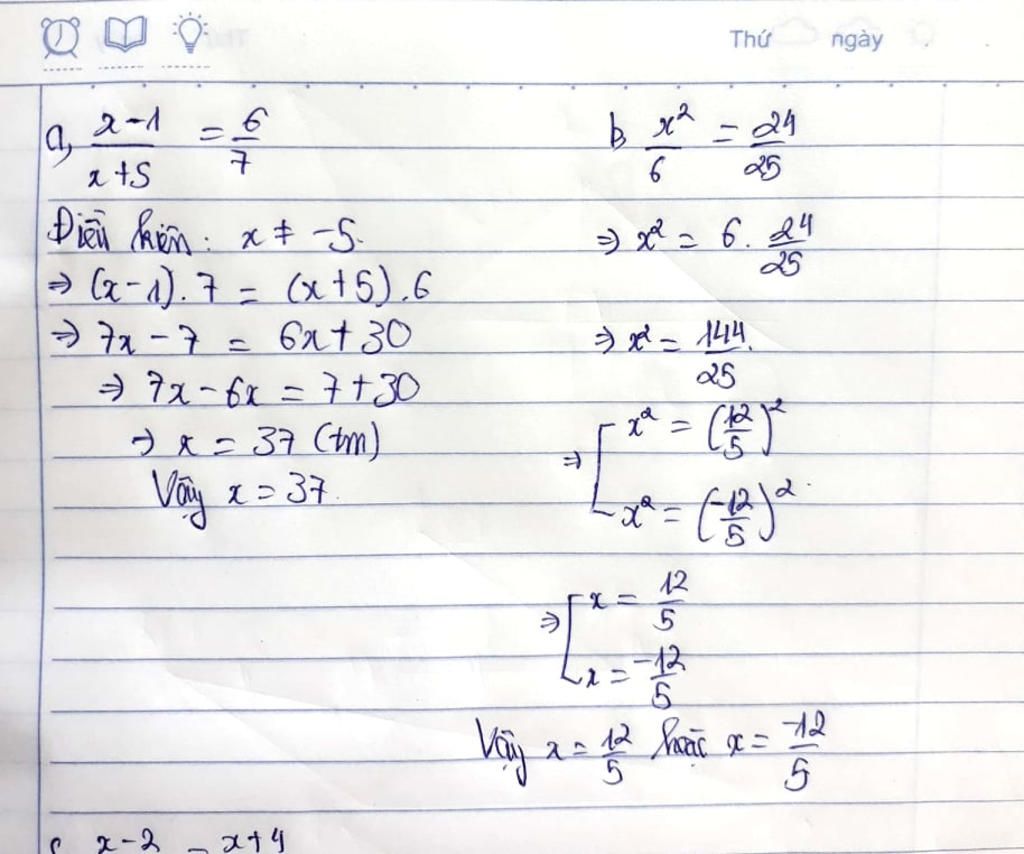 Thứ ngày
a, x-1/x+5 = 6/7
Điều kiện: x ≠ -5.
⇒ (x-1).7 = (x+5).6
⇒ 7x - 7 = 6x + 30
⇒ 7x - 6x = 7 + 30
⇒ x = 37 (tm)
Vậy x = 37.
b, x²/6 = 24/25
⇒ x² = 6 . 24/25
⇒ x² = 144/25
⇒ [ x² = (12/5)²
x² = (-12/5)²
⇒ [ x = 12/5
x = -12/5
Vậy x = 12/5 hoặc x = -12/5
c, x-2 = x+4